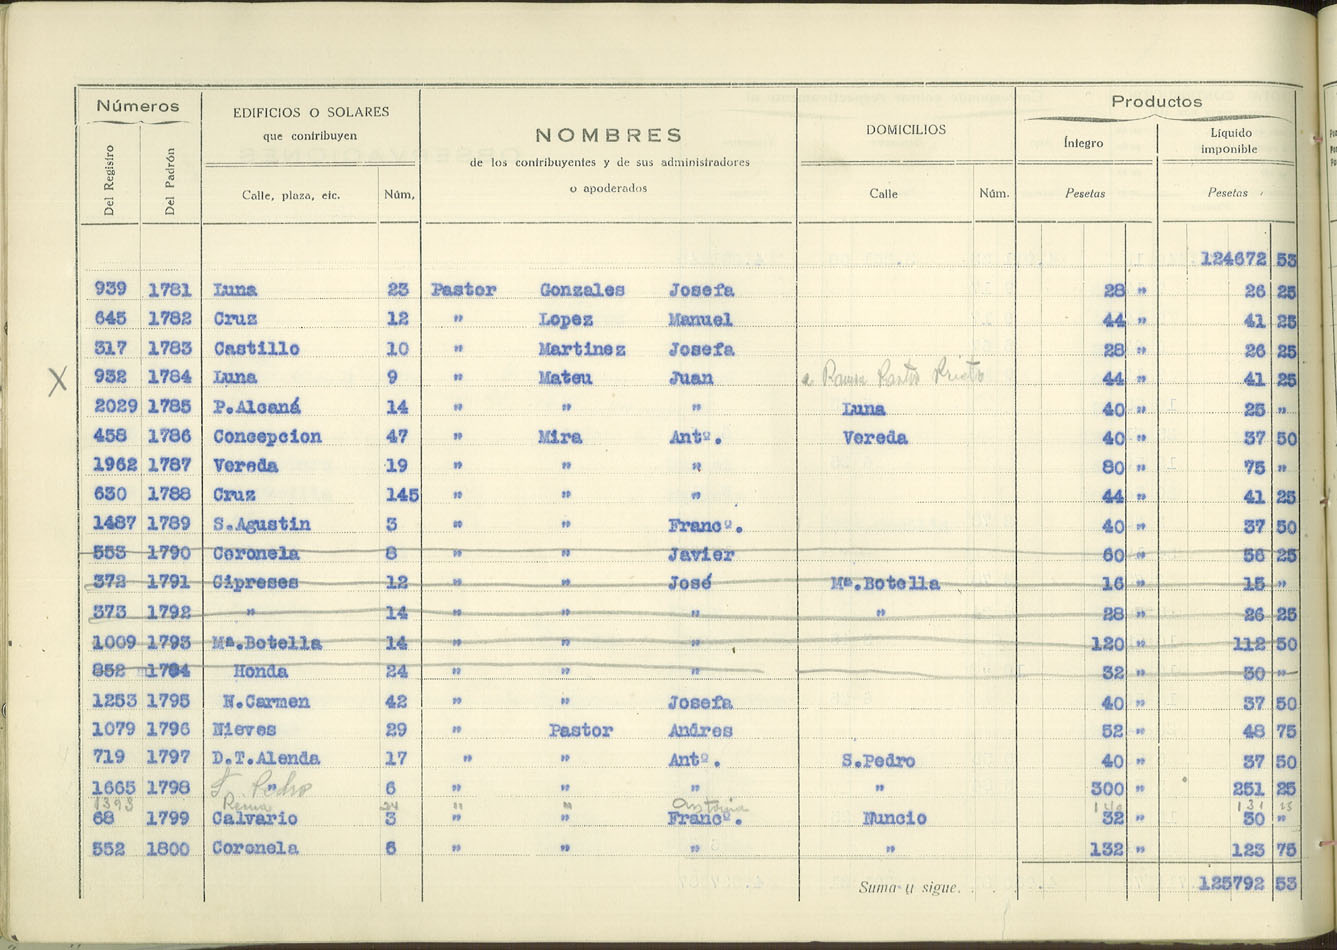 Números
EDIFICIOS O SOLARES
que contribuyen
NOMBRES
de los contribuyentes y de sus administradores
o apoderados
DOMICILIOS
Productos
Íntegro
Líquido
imponible
Del Registro
Del Padrón
Calle, plaza, etc.
Núm,
Calle
Núm.
Pesetas
Pesetas
124672 53
939 1781 Luna 23 Pastor Gonzales Josefa 28 " 26 25
645 1782 Cruz 12 " Lopez Manuel 44 " 41 25
317 1783 Castillo 10 " Martinez Josefa 28 " 26 25
X 932 1784 Luna 9 " Mateu Juan a Ramon Prieto 44 " 41 25
2029 1785 P.Alcaná 14 " " " Luna 40 " 25 "
458 1786 Concepcion 47 " Mira Antº. Vereda 40 " 37 50
1962 1787 Vereda 19 " " " 80 " 75 "
630 1788 Cruz 145 " " " 44 " 41 25
1487 1789 S.Agustin 3 " " Francº. 40 " 37 50
553 1790 Coronela 8 " " Javier 60 " 56 25
372 1791 Cipreses 12 " " José Mª.Botella 16 " 15 "
373 1792 " 14 " " " " 28 " 26 25
1009 1793 Mª.Botella 14 " " " 120 " 112 50
852 1794 Honda 24 " " " 32 " 30 "
1253 1795 N.Carmen 42 " " Josefa 40 " 37 50
1079 1796 Nieves 29 " Pastor Andres 52 " 48 75
719 1797 D.T.Alenda 17 " " Antº. S.Pedro 40 " 37 50
1665 1798 " S. Pedro 6 " " " " 300 " 251 25
1393 24 " " Antonia 140 131 25
68 1799 Calvario 3 " " Francº. Nuncio 32 " 30 "
552 1800 Coronela 6 " " " " 132 " 123 75
Suma y sigue. . . . 125792 53